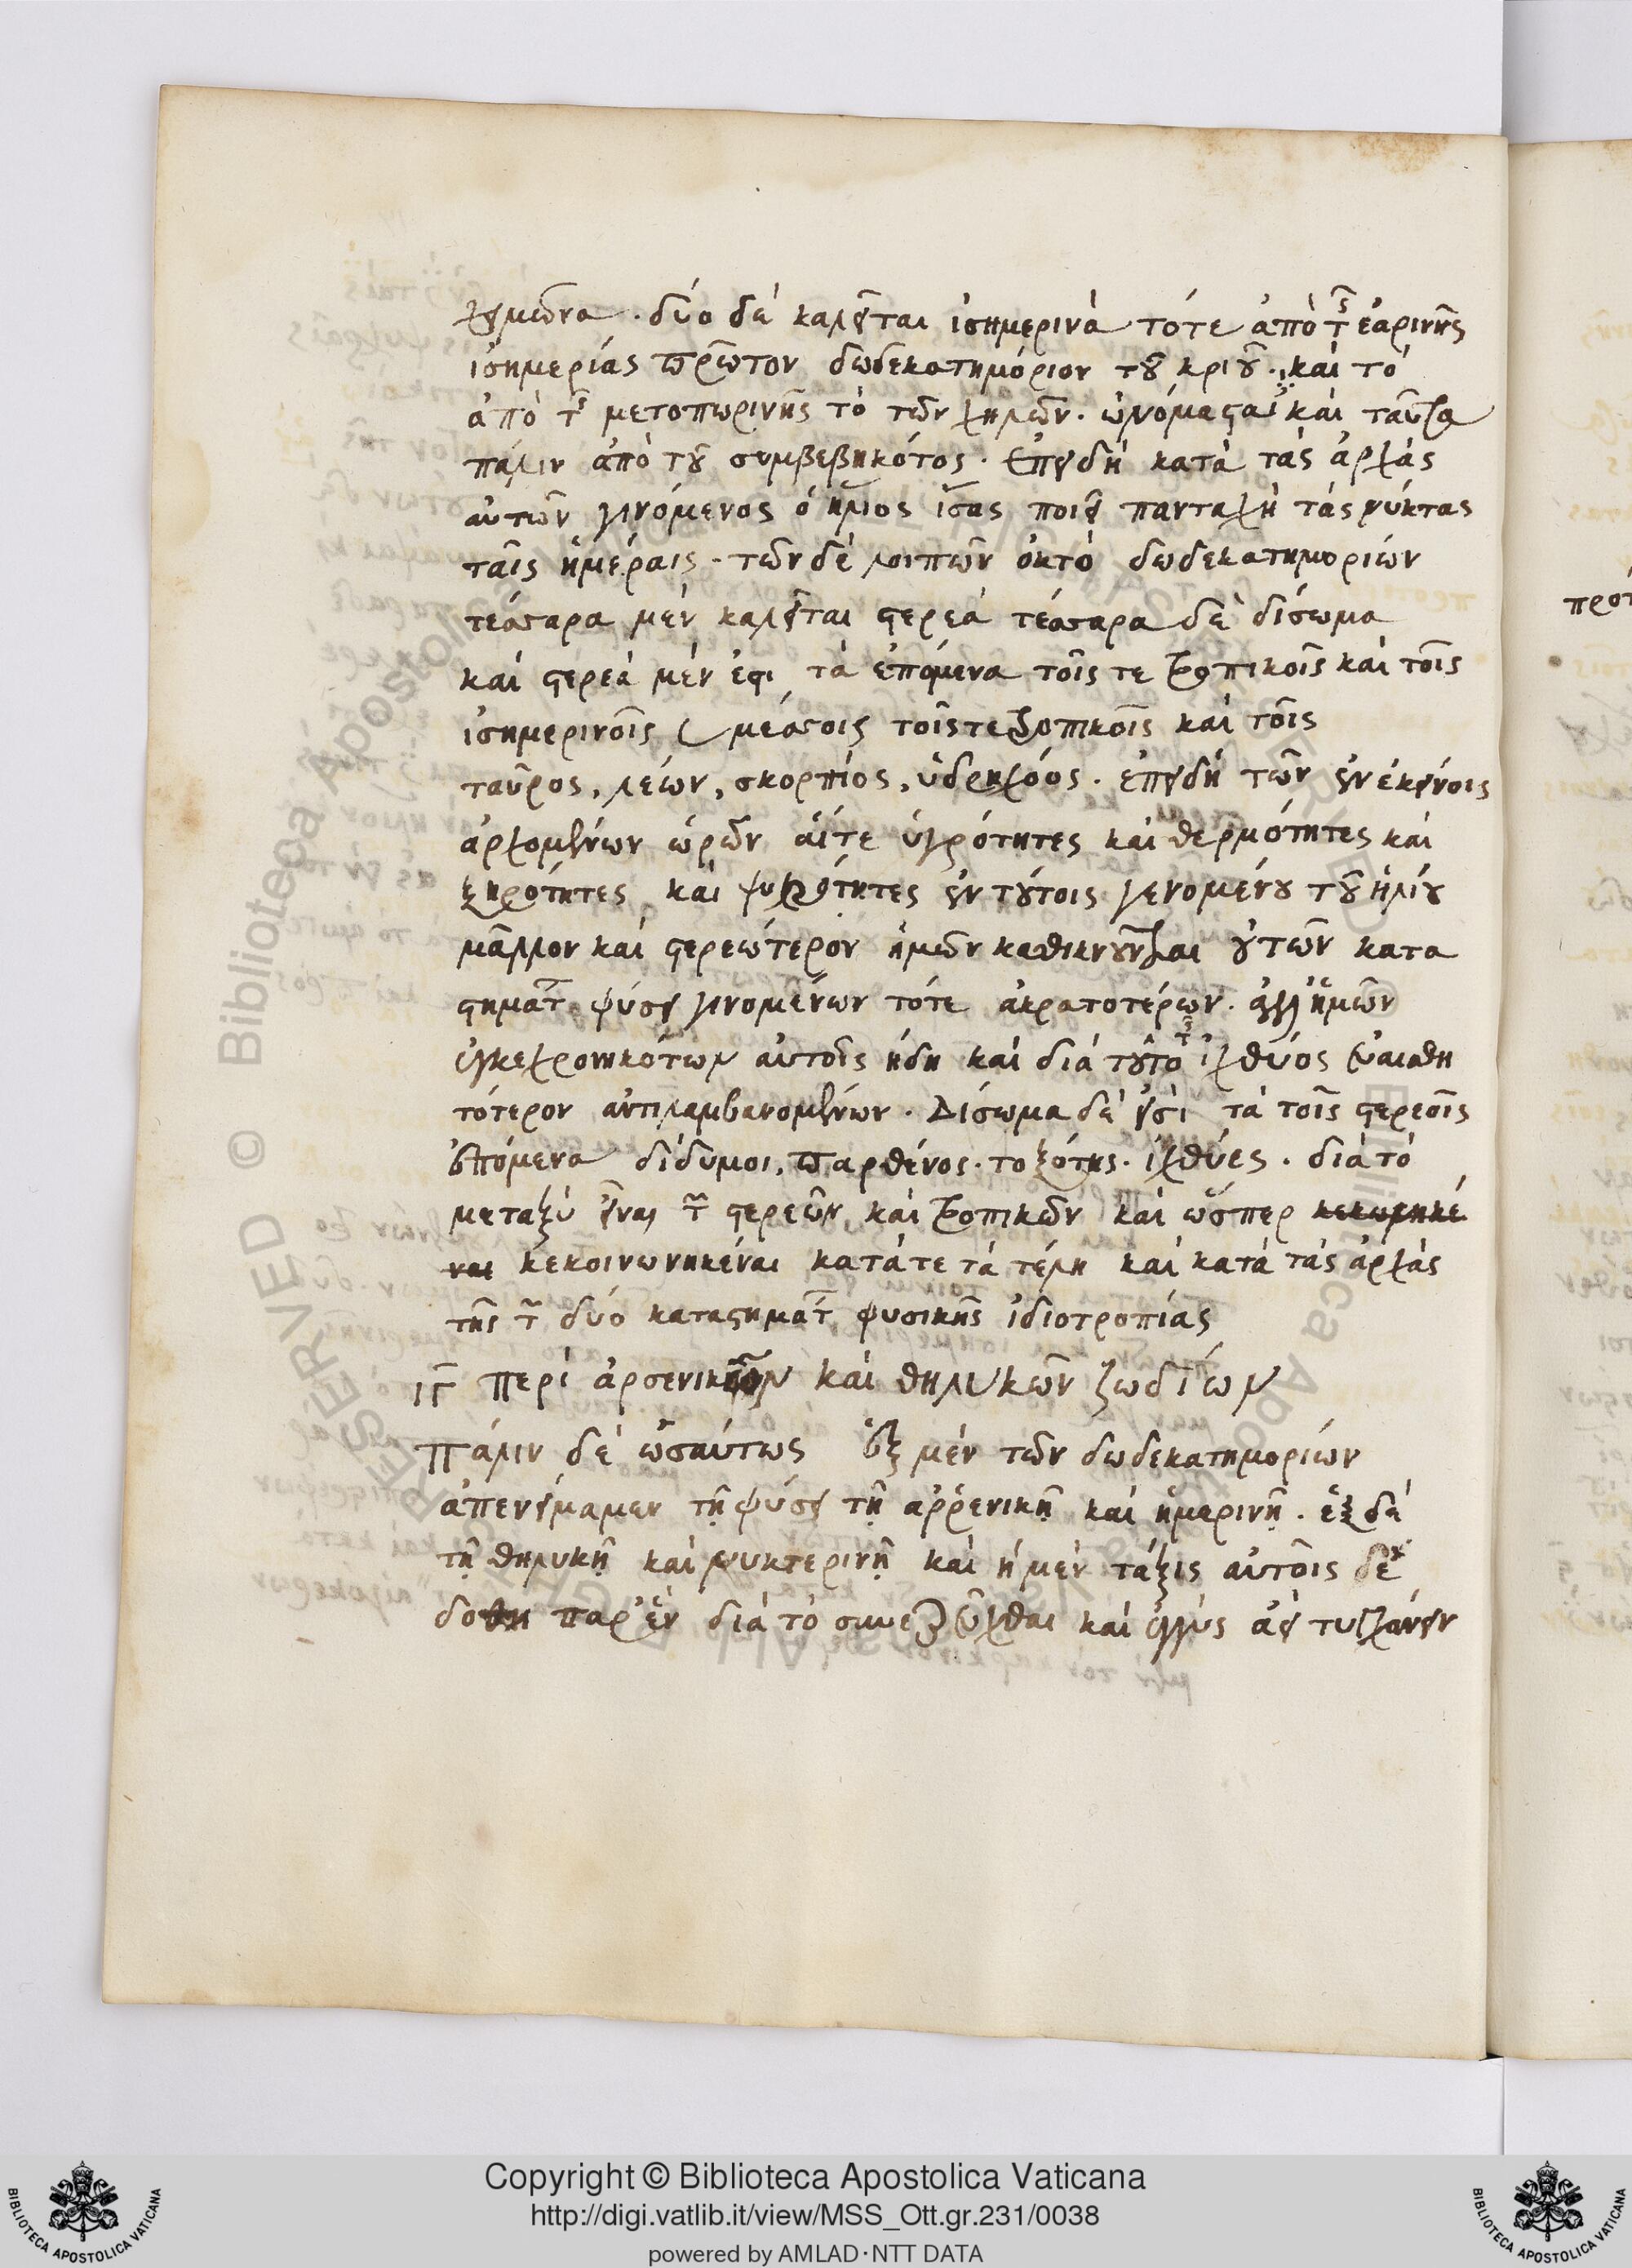 χειμῶνα. δύο δὲ καλεῖται ἰσημερινὰ τότε ἀπὸ τῆς ἐαρινῆς
ἰσημερίας πρῶτον δωδεκατημόριον τοῦ κριοῦ. καὶ τὸ
ἀπὸ τῆς μετοπωρινῆς τὸ τῶν χηλῶν. ὠνόμασται καὶ ταῦτα
πάλιν ἀπὸ τοῦ συμβεβηκότος. ἐπειδὴ κατὰ τὰς ἀρχὰς
αὐτῶν γινόμενος ὁ ἥλιος ἴσας ποιεῖ πανταχῆ τὰς νύκτας
ταῖς ἡμέραις. τῶν δὲ λοιπῶν ὀκτὸ δωδεκατημοριών
τέσσαρα μὲν καλεῖται στερεὰ τέσσαρα δὲ δίσωμα
καὶ στερεὰ μέν ἐστι τὰ ἑπόμενα τοῖς τε τροπικοῖς καὶ τοῖς
ἰσημερινοῖς μέσσοις τοῖς τε τροπικοῖς καὶ τοῖς
ταῦρος, λέων, σκορπίος, ὑδρηχόος. ἐπειδὴ τῶν ἐν ἐκείνοις
ἀρχομένων ὡρῶν αἵ τε ὑγρότητες καὶ θερμότητες καὶ
ξηρότητες καὶ ψυχρότητες ἐν τούτοις γενομένου τοῦ ἡλίου
μᾶλλον καὶ στερεώτερον ἡμῶν καθικνοῦνται οὐ τῶν κατα
στημάτων φύσει γινομένων τότε ἀκρατοτέρων. ἀλλ' ἡμῶν
ἐγκεχρονικότων αὐτοῖς ἤδη καὶ διὰ τοῦτο τῆς ἰχθύος εὐαισθη
τότερον ἀντιλαμβανομένων. Δίσωμα δέ εἰσὶ τὰ τοῖς στερεοῖς
ἑπόμενα δίδυμοι, παρθένος. τοξότης. ἰχθύες. διὰ τὸ
μεταξύ εἶναι τῶν στερεῶν καὶ τροπικῶν καὶ ὥσπερ
κεκοινωνηκέναι κατά τε τὰ τέλη καὶ κατὰ τὰς ἀρχὰς
τῆς τῶν δύο καταστημάτων φυσικῆς ἰδιοτροπίας
ιγ περὶ ἀρσενικῶν καὶ θηλυκῶν ζωδίων
Πάλιν δὲ ὡσαύτως ἓξ μὲν τῶν δωδεκατημοριών
ἀπενείμαμεν τῇ φύσει τῇ ἀρρενικῇ καὶ ἡμερινῇ. ἓξ δὲ
τῇ θηλυκῇ καὶ νυκτερινῇ καὶ ἡ μὲν τάξις αὐτοῖς δὲ
δοθη παρ' ἓν διὰ τὸ συνεζεῦχθαι καὶ ἐγγύς ἀεὶ τυγχάνειν
προτ